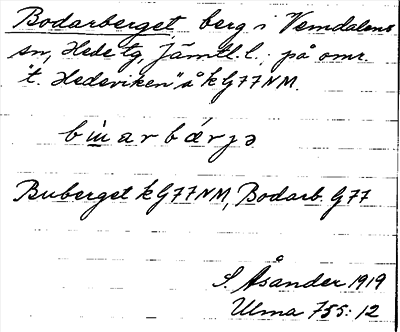 Bodarberget, berg i Vemdalens
sn, Hede tg, Jämtl. l.; på omr.
"t. Hedeviken" å k G77NM.
bu̇arbǽrjə
Buberget k G77NM, Bodarb. G77
S. Åsander 1919
Ulma 755:12